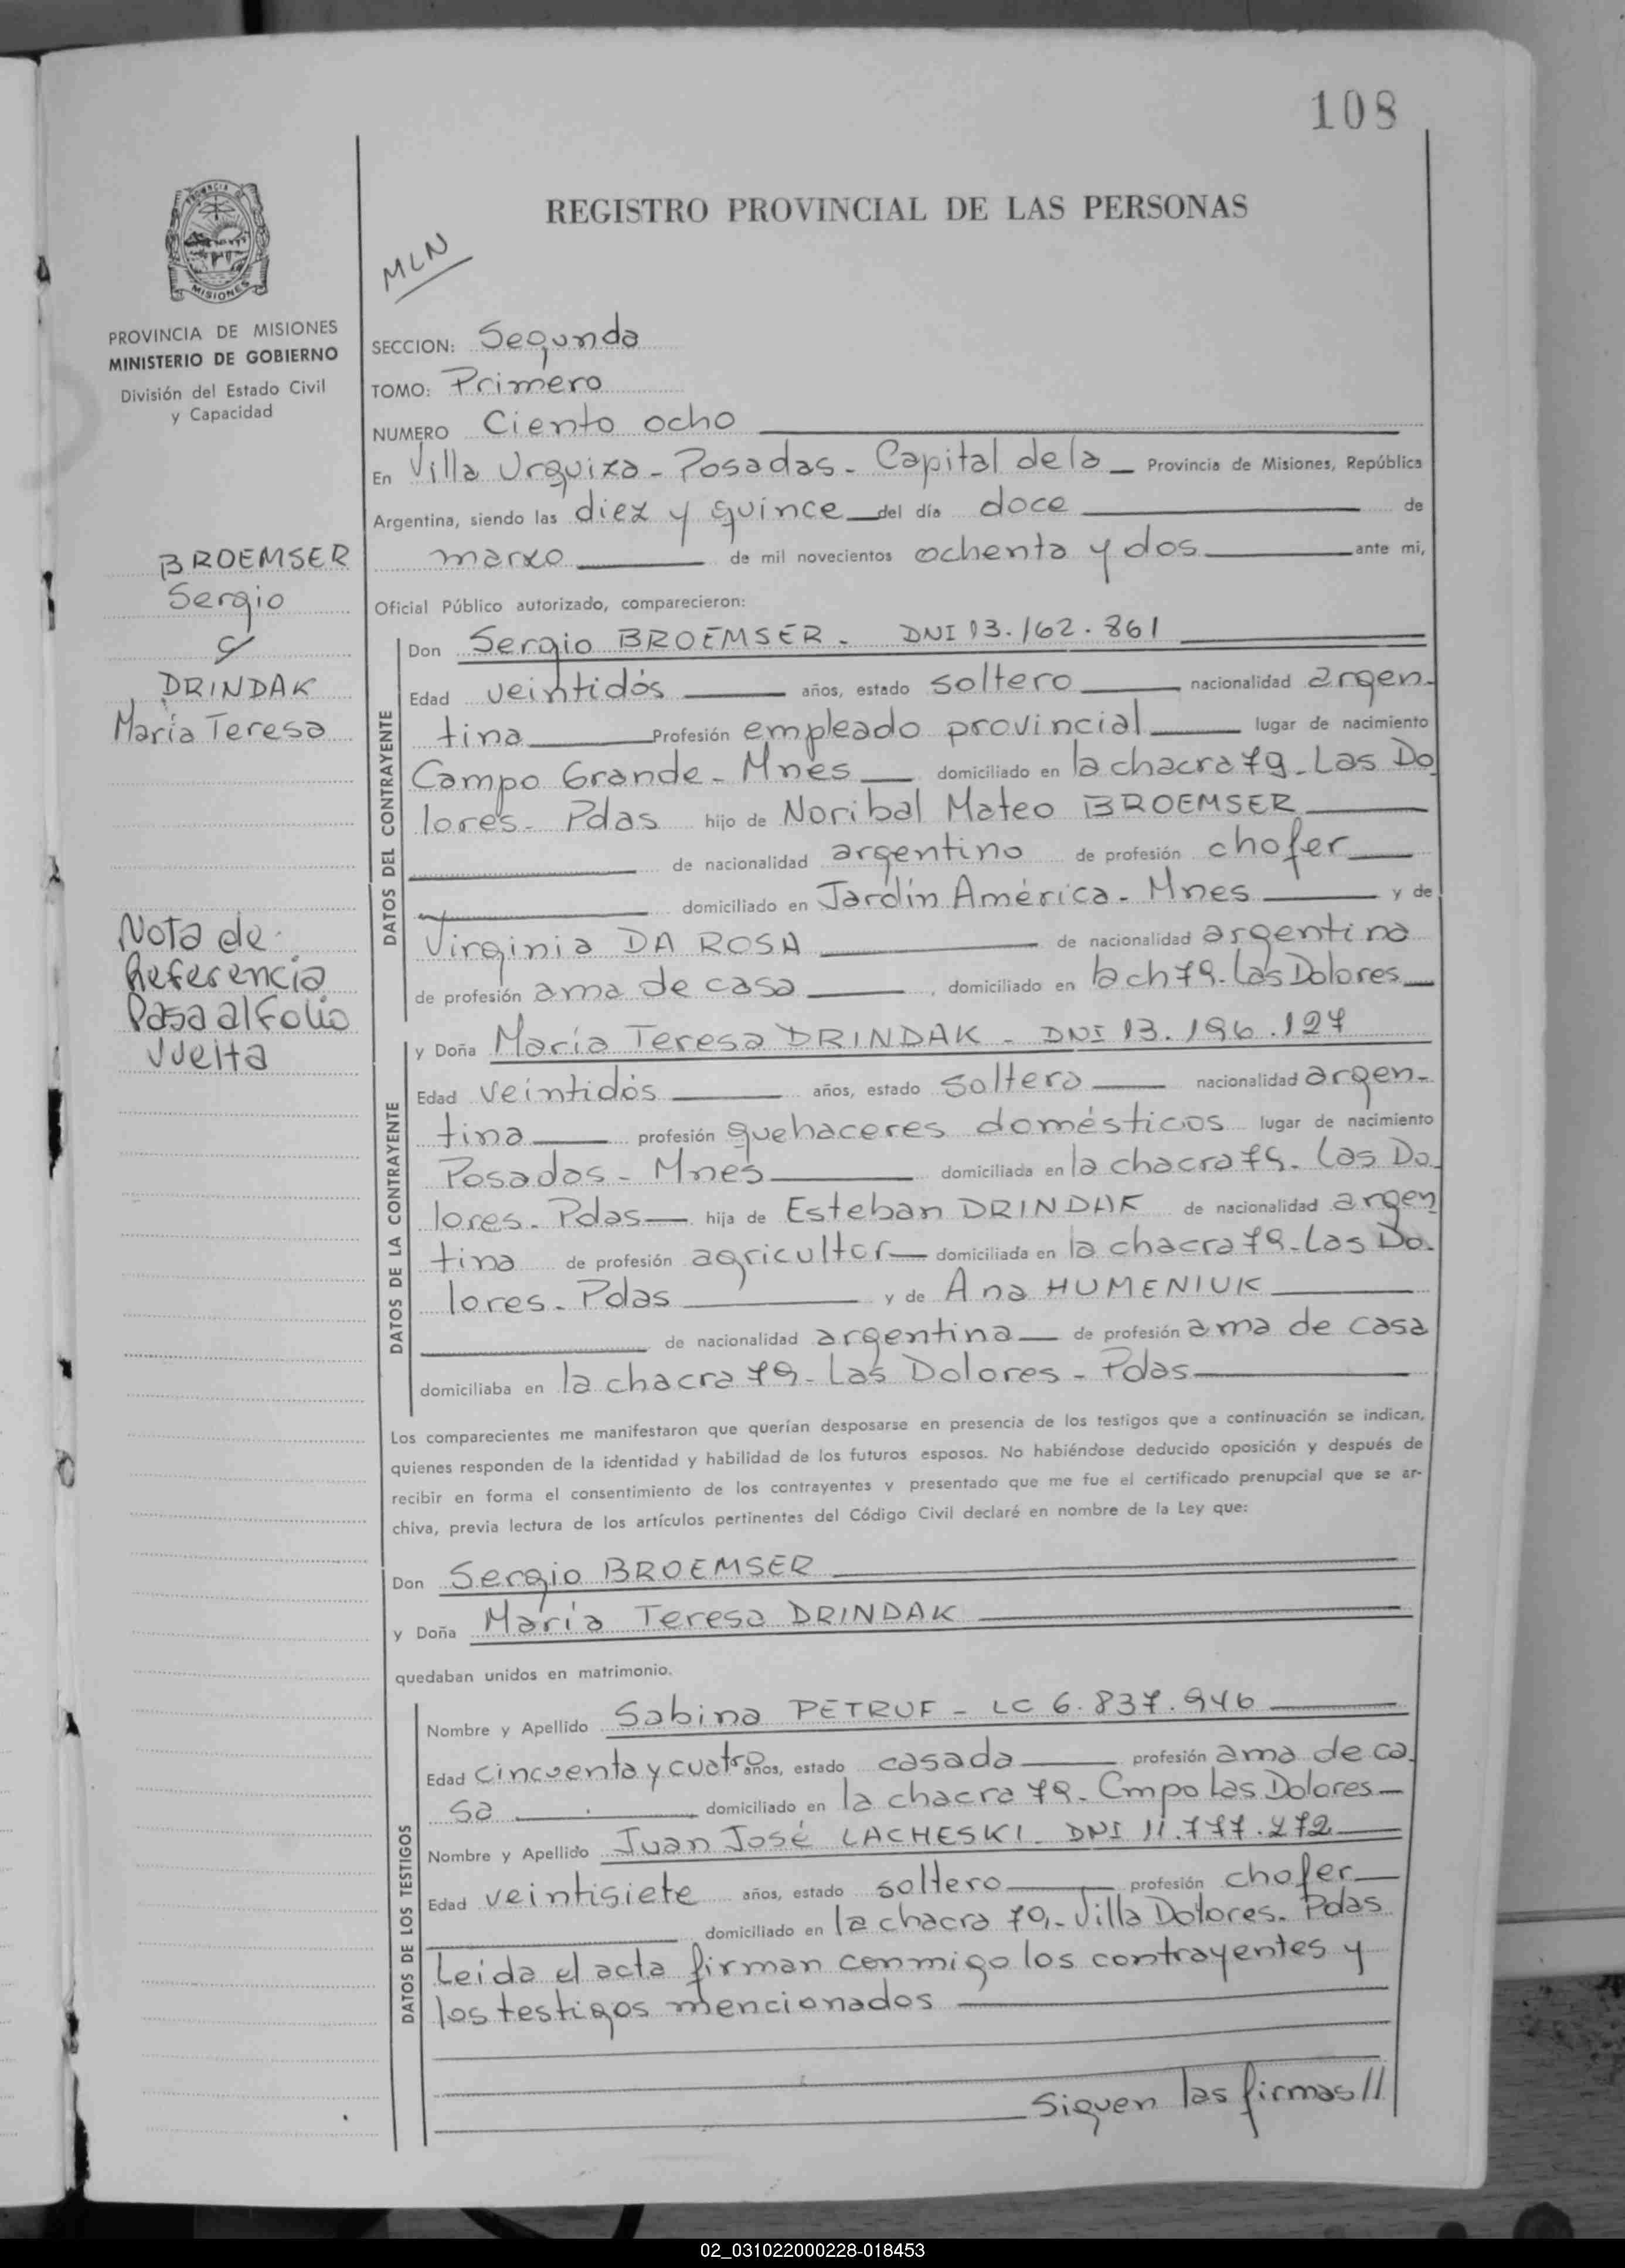 108
REGISTRO PROVINCIAL DE LAS PERSONAS
MLN
PROVINCIA DE MISIONES
MINISTERIO DE GOBIERNO
División del Estado Civil
y Capacidad
SECCION: Segunda
TOMO: Primero
NUMERO Ciento ocho
En Villa Urquiza - Posadas - Capital de la Provincia de Misiones, República
Argentina, siendo las diez y quince del día doce de
marzo de mil novecientos ochenta y dos ante mi,
Oficial Público autorizado, comparecieron:
BROEMSER
Sergio
c/
DRINDAK
María Teresa
Nota de
Referencia
Pasa al Folio
Vuelta
DATOS DEL CONTRAYENTE
Don Sergio BROEMSER - DNI 13.162.861
Edad veintidós años, estado soltero nacionalidad argen-
tina Profesión empleado provincial lugar de nacimiento
Campo Grande - Mnes domiciliado en la chacra 79 - Las Do
lores - Pdas hijo de Noribal Mateo BROEMSER
de nacionalidad argentino de profesión chofer
domiciliado en Jardín América - Mnes y de
Virginia DA ROSA de nacionalidad argentina
de profesión ama de casa, domiciliado en la ch 79 - Las Dolores
DATOS DE LA CONTRAYENTE
y Doña María Teresa DRINDAK - DNI 13.196.127
Edad veintidós años, estado soltera nacionalidad argen-
tina profesión quehaceres domésticos lugar de nacimiento
Posadas - Mnes domiciliada en la chacra 79 - Las Do-
lores - Pdas hija de Esteban DRINDAK de nacionalidad argen
tina de profesión agricultor domiciliada en la chacra 79 - Las Do-
lores - Pdas y de Ana HUMENIUK
de nacionalidad argentina de profesión ama de casa
domiciliaba en la chacra 79 - Las Dolores - Pdas
Los comparecientes me manifestaron que querían desposarse en presencia de los testigos que a continuación se indican,
quienes responden de la identidad y habilidad de los futuros esposos. No habiéndose deducido oposición y después de
recibir en forma el consentimiento de los contrayentes y presentado que me fue el certificado prenupcial que se ar-
chiva, previa lectura de los artículos pertinentes del Código Civil declaré en nombre de la Ley que:
Don Sergio BROEMSER
y Doña María Teresa DRINDAK
quedaban unidos en matrimonio.
DATOS DE LOS TESTIGOS
Nombre y Apellido Sabina PETRUF - LC 6.837.946
Edad cincuenta y cuatro años, estado casada profesión ama de ca-
sa domiciliado en la chacra 79 - Cmpo Las Dolores
Nombre y Apellido Juan José LACHESKI - DNI 11.777.272
Edad veintisiete años, estado soltero profesión chofer
domiciliado en la chacra 79 - Villa Dolores - Pdas
Leída el acta firman conmigo los contrayentes y
los testigos mencionados
Siguen las firmas //
02_031022000228-018453